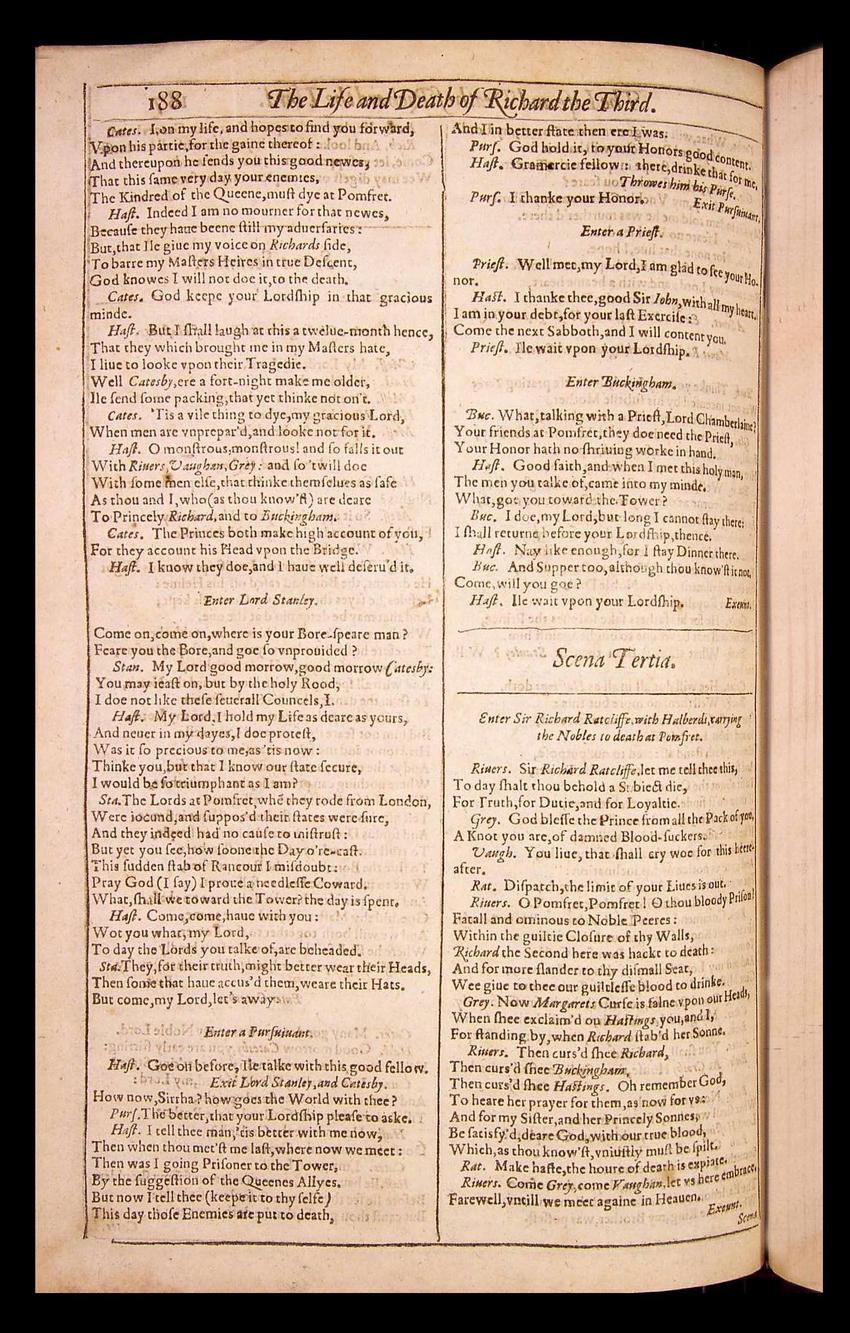 188
The Life and Death of Richard the Third.
Cates. I, on my life, and hopes to find you forward,
Vpon his partie, for the gaine thereof:
And thereupon he sends you this good newes,
That this same very day your enemies,
The Kindred of the Queene, must dye at Pomfret.
Hast. Indeed I am no mourner for that newes,
Because they haue beene still my aduersaries:
But, that Ile giue my voice on Richards side,
To barre my Masters Heires in true Descent,
God knowes I will not doe it, to the death.
Cates. God keepe your Lordship in that gracious
minde.
Hast. But I shall laugh at this a twelue-month hence,
That they which brought me in my Masters hate,
I liue to looke vpon their Tragedie.
Well Catesby, ere a fort-night make me older,
Ile send some packing, that yet thinke not on't.
Cates. 'Tis a vile thing to dye, my gracious Lord,
When men are vnprepar'd, and looke not for it.
Hast. O monstrous, monstrous! and so falls it out
With Riuers, Vaughan, Grey: and so 'twill doe
With some men else, that thinke themselues as safe
As thou and I, who (as thou know'st) are deare
To Princely Richard, and to Buckingham.
Cates. The Princes both make high account of you,
For they account his Head vpon the Bridge.
Hast. I know they doe, and I haue well deseru'd it.
Enter Lord Stanley.
Come on, come on, where is your Bore-speare man?
Feare you the Bore, and goe so vnprouided?
Stan. My Lord good morrow, good morrow Catesby:
You may ieast on, but by the holy Rood,
I doe not like these seuerall Councels, I.
Hast. My Lord, I hold my Life as deare as yours,
And neuer in my dayes, I doe protest,
Was it so precious to me, as 'tis now:
Thinke you, but that I know our state secure,
I would be so triumphant as I am?
Sta. The Lords at Pomfret, whē they rode from London,
Were iocund, and suppos'd their states were sure,
And they indeed had no cause to mistrust:
But yet you see, how soone the Day o're-cast.
This sudden stab of Rancour I misdoubt:
Pray God (I say) I proue a needlesse Coward.
What, shall we toward the Tower? the day is spent.
Hast. Come, come, haue with you:
Wot you what, my Lord,
To day the Lords you talke of, are beheaded.
Sta. They, for their truth, might better wear their Heads,
Then some that haue accus'd them, weare their Hats.
But come, my Lord, let's away.
Enter a Pursuiuant.
Hast. Goe on before, Ile talke with this good fellow.
Exit Lord Stanley, and Catesby.
How now, Sirrha? how goes the World with thee?
Purs. The better, that your Lordship please to aske.
Hast. I tell thee man, 'tis better with me now,
Then when thou met'st me last, where now we meet:
Then was I going Prisoner to the Tower,
By the suggestion of the Queenes Allyes.
But now I tell thee (keepe it to thy selfe)
This day those Enemies are put to death,
And I in better state then ere I was.
Purs. God hold it, to your Honors good content.
Hast. Gramercie fellow: there, drinke that for me.
Throwes him his Purse.
Purs. I thanke your Honor.
Exit Pursuiuant.
Enter a Priest.
Priest. Well met, my Lord, I am glad to see your Ho-
nor.
Hast. I thanke thee, good Sir Iohn, with all my heart.
I am in your debt, for your last Exercise:
Come the next Sabboth, and I will content you.
Priest. Ile wait vpon your Lordship.
Enter Buckingham.
Buc. What, talking with a Priest, Lord Chamberlaine?
Your friends at Pomfret, they doe need the Priest,
Your Honor hath no shriuing worke in hand.
Hast. Good faith, and when I met this holy man,
The men you talke of, came into my minde.
What, goe you toward the Tower?
Buc. I doe, my Lord, but long I cannot stay there:
I shall returne before your Lordship, thence.
Hast. Nay like enough, for I stay Dinner there.
Buc. And Supper too, although thou know'st it not.
Come, will you goe?
Hast. Ile wait vpon your Lordship. Exeunt.
Scena Tertia.
Enter Sir Richard Ratcliffe, with Halberds, carrying
the Nobles to death at Pomfret.
Riuers. Sir Richard Ratcliffe, let me tell thee this,
To day shalt thou behold a Subiect die,
For Truth, for Dutie, and for Loyaltie.
Grey. God blesse the Prince from all the Pack of you,
A Knot you are, of damned Blood-suckers.
Vaugh. You liue, that shall cry woe for this heere-
after.
Rat. Dispatch, the limit of your Liues is out.
Riuers. O Pomfret, Pomfret! O thou bloody Prison!
Fatall and ominous to Noble Peeres:
Within the guiltie Closure of thy Walls,
Richard the Second here was hackt to death:
And for more slander to thy dismall Seat,
Wee giue to thee our guiltlesse blood to drinke.
Grey. Now Margarets Curse is falne vpon our Heads,
When shee exclaim'd on Hastings, you, and I,
For standing by, when Richard stab'd her Sonne.
Riuers. Then curs'd shee Richard,
Then curs'd shee Buckingham,
Then curs'd shee Hastings. Oh remember God,
To heare her prayer for them, as now for vs:
And for my Sister, and her Princely Sonnes,
Be satisfy'd, deare God, with our true blood,
Which, as thou know'st, vniustly must be spilt.
Rat. Make haste, the houre of death is expiate.
Riuers. Come Grey, come Vaughan, let vs here embrace.
Farewell, vntill we meet againe in Heauen.
Exeunt.
Scena